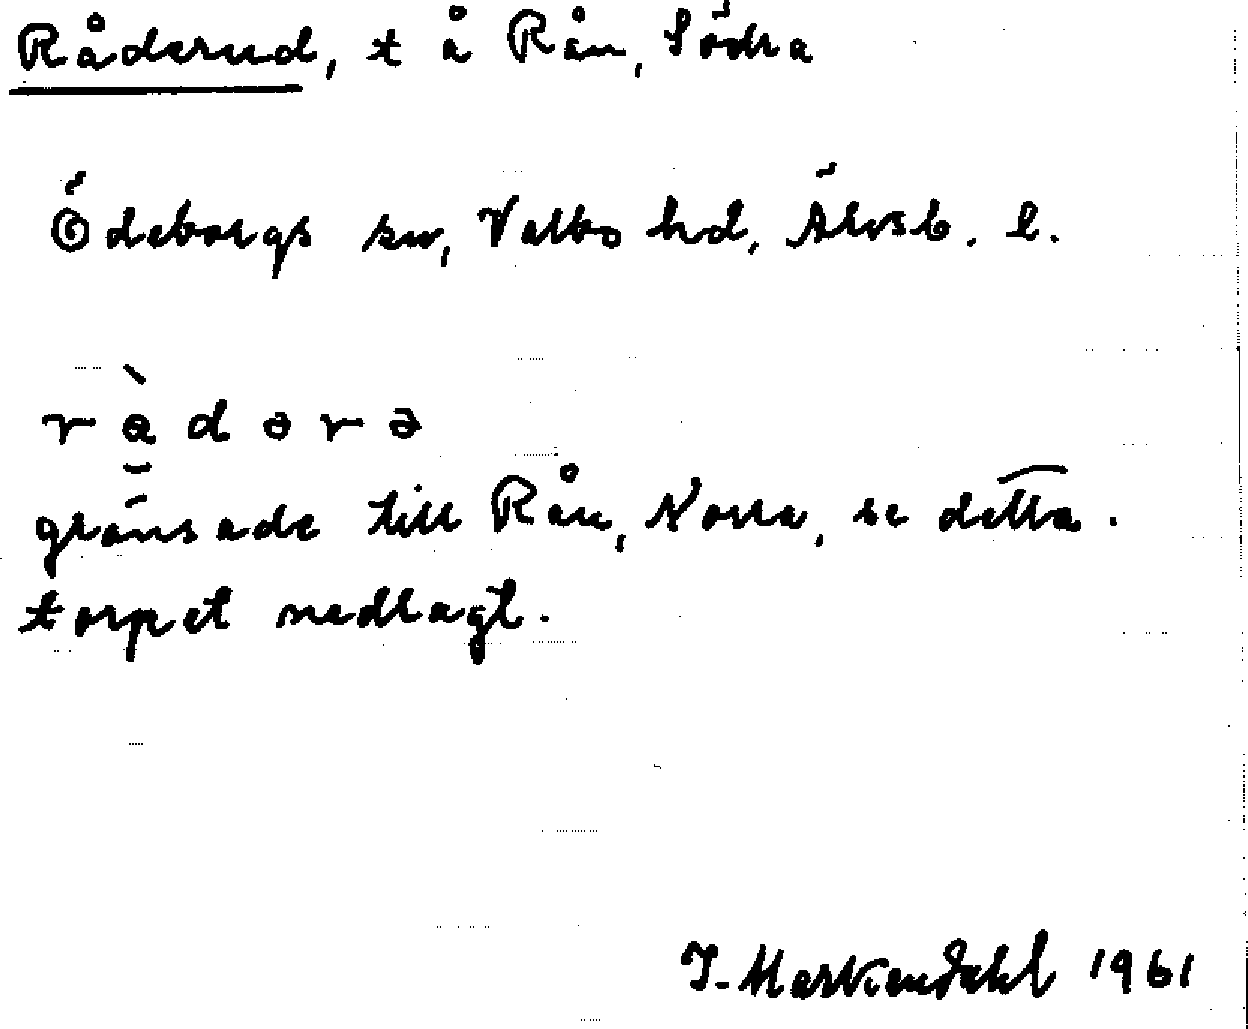 Råderud, t å Rån, Södra
Ödeborgs sn, Valbo hd, Älvsb. l.
rå̀dərə
gränsade till Rån, Norra, se detta.
torpet nedlagt.
1961